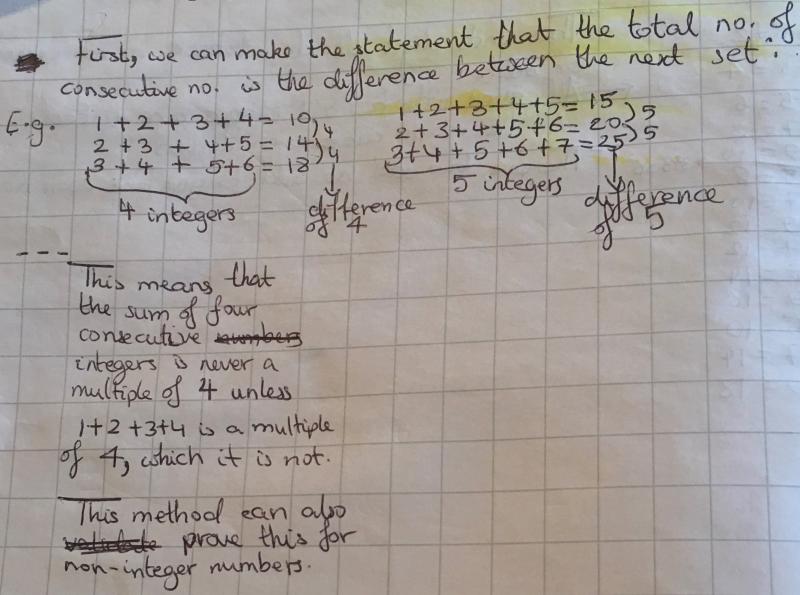 First, we can make the statement that the total no. of
consecutive no. is the difference between the next set:
E.g. 1 + 2 + 3 + 4 = 10 1+2+3+4+5 = 15
4 5
2 + 3 + 4+5 = 14 2+3+4+5+6 = 20
4 5
3 + 4 + 5+6 = 18 3+4+5+6+7 = 25
4 integers difference of 4 5 integers difference of 5
---
This means that
the sum of four
consecutive numbers
integers is never a
multiple of 4 unless
1+2+3+4 is a multiple
of 4, which it is not.
This method can also
prove this for
non-integer numbers.